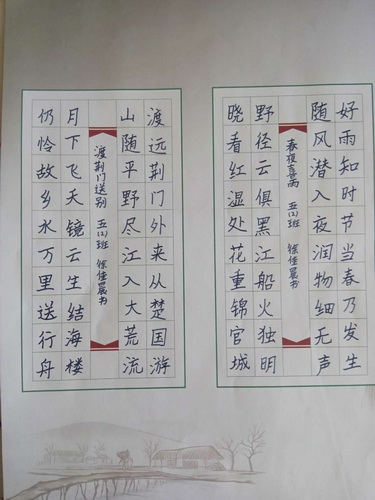 好雨知时节当春乃发生
随风潜入夜润物细无声
春夜喜雨 五(2)班 徐佳晨书
野径云俱黑江船火独明
晓看红湿处花重锦官城
渡远荆门外来从楚国游
山随平野尽江入大荒流
渡荆门送别 五(2)班 徐佳晨书
月下飞天镜云生结海楼
仍怜故乡水万里送行舟